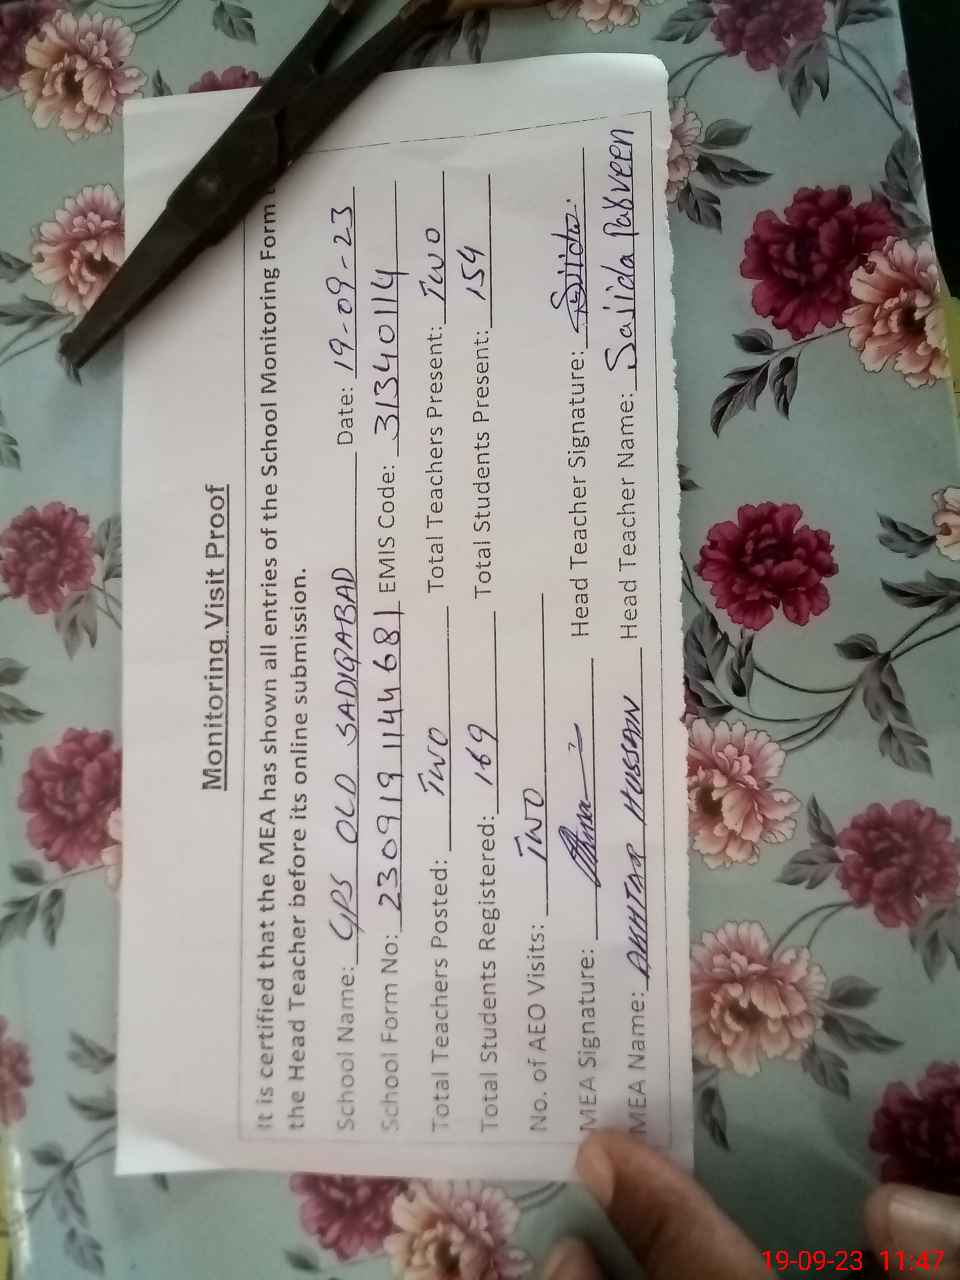 Monitoring Visit Proof
It is certified that the MEA has shown all entries of the School Monitoring Form
the Head Teacher before its online submission.
School Name: GPS OLD SADIQABAD Date: 19-09-23
School Form No: 230919114468 1 EMIS Code: 31340114
Total Teachers Posted: TWO Total Teachers Present: TWO
Total Students Registered: 169 Total Students Present: 154
No. of AEO Visits: TWO
MEA Signature: Head Teacher Signature:
MEA Name: AKHTAR HUSSAIN Head Teacher Name: Sajida Parveen
19-09-23 11:47